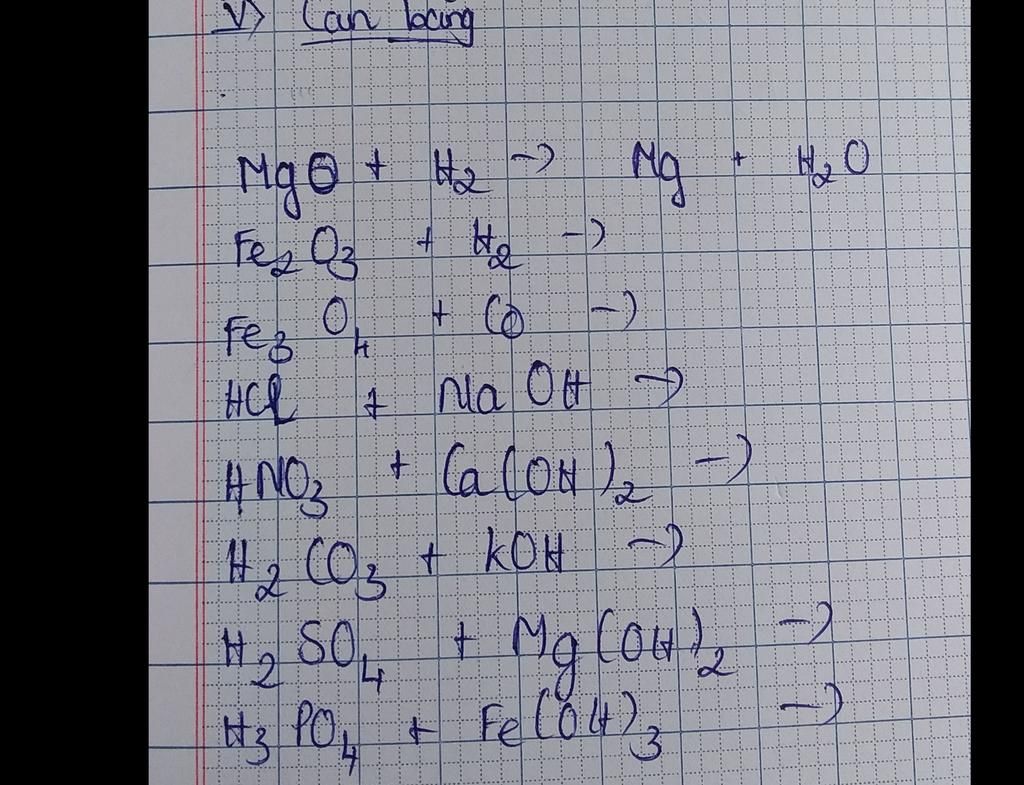 V) Can bang
MgO + H2 -> Mg + H2O
Fe2O3 + H2 ->
Fe3O4 + CO ->
HCl + NaOH ->
HNO3 + Ca(OH)2 ->
H2CO3 + kOH ->
H2SO4 + Mg(OH)2 ->
H3PO4 + Fe(OH)3 ->